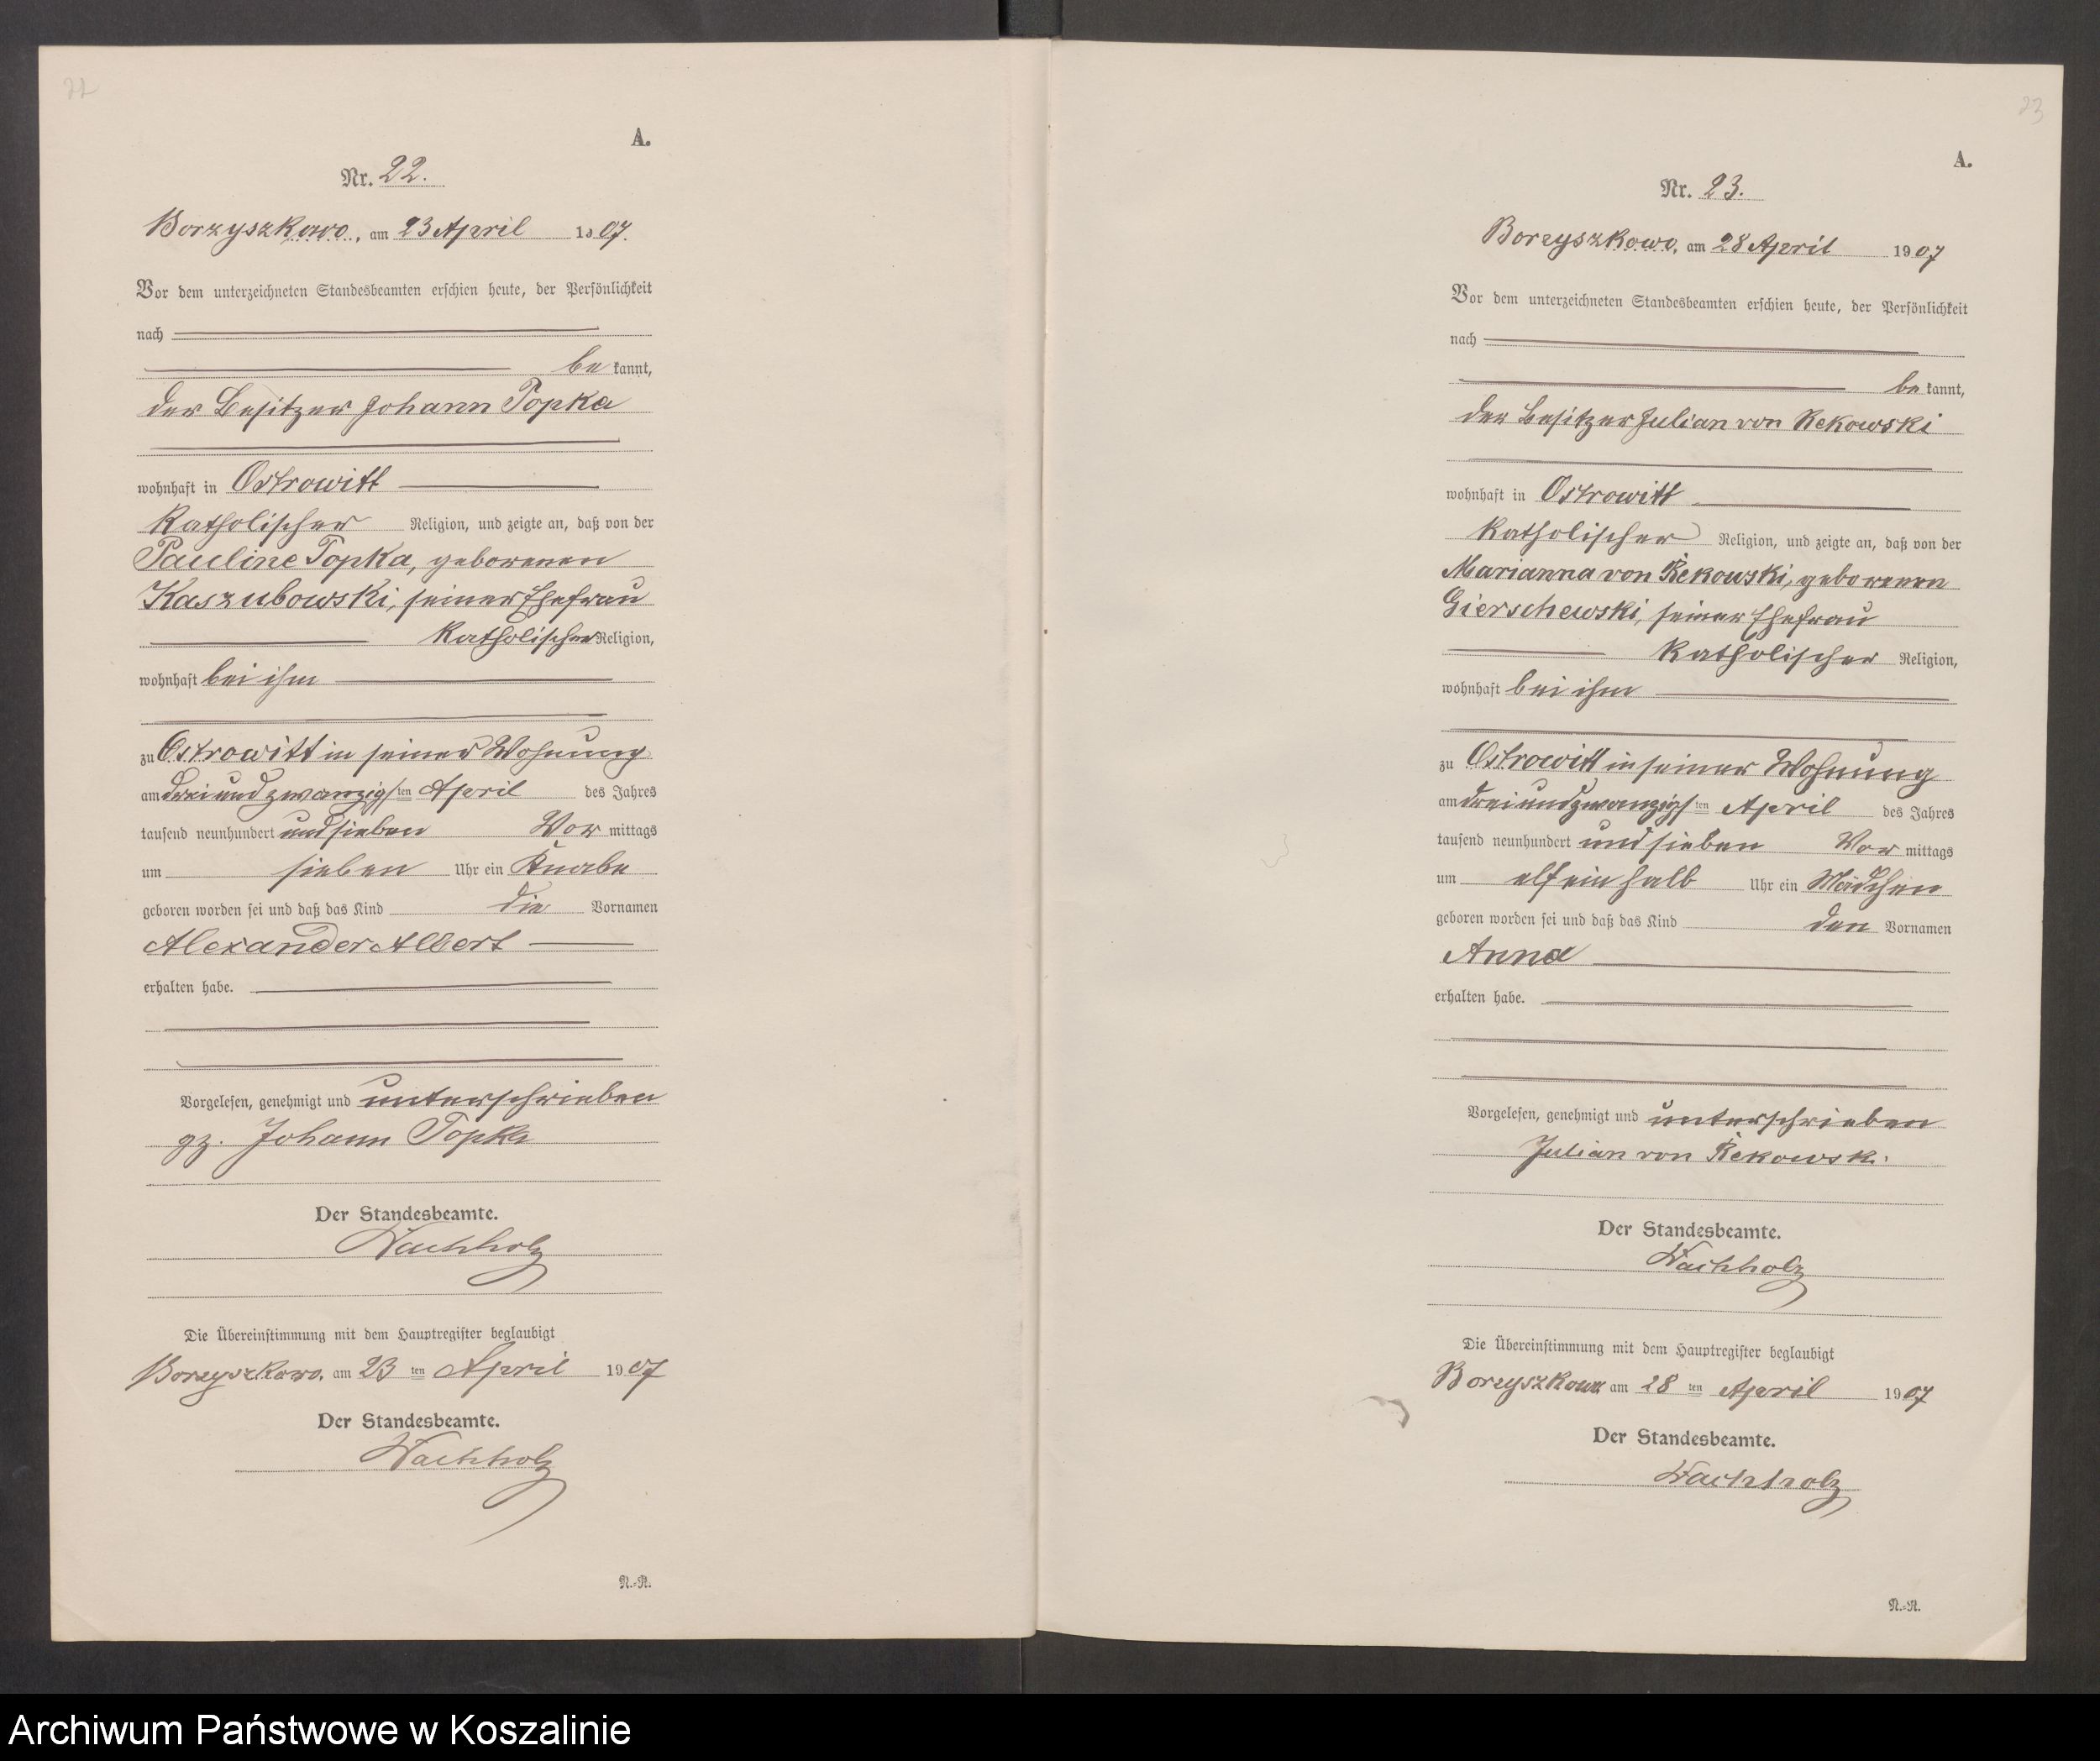 22
A.
Nr. 22.
Borzyszkowo, am 23 April 1907.
Vor dem unterzeichneten Standesbeamten erschien heute, der Persönlichkeit
nach
be kannt,
der Besitzer Johann Topka
wohnhaft in Ostrowitt
katholischer Religion, und zeigte an, daß von der
Pauline Topka, geborenen
Kaszubowski, seiner Ehefrau
katholischer Religion,
wohnhaft bei ihm
zu Ostrowitt in seiner Wohnung
am dreiundzwanzigsten April des Jahres
tausend neunhundert und sieben Vor mittags
um sieben Uhr ein Knabe
geboren worden sei und daß das Kind die Vornamen
Alexander Albert
erhalten habe.
Vorgelesen, genehmigt und unterschrieben
gz. Johann Topka
Der Standesbeamte.
Wachholz
Die Übereinstimmung mit dem Hauptregister beglaubigt
Borzyszkowo, am 23 ten April 1907
Der Standesbeamte.
Wachholz
N.-R.
23
A.
Nr. 23.
Borzyszkowo, am 28 April 1907
Vor dem unterzeichneten Standesbeamten erschien heute, der Persönlichkeit
nach
be kannt,
der Besitzer Julian von Rekowski
wohnhaft in Ostrowitt
katholischer Religion, und zeigte an, daß von der
Marianna von Rekowski, geborenen
Gierschewski, seiner Ehefrau
katholischer Religion,
wohnhaft bei ihm
zu Ostrowitt in seiner Wohnung
am dreiundzwanzigsten April des Jahres
tausend neunhundert und sieben Vor mittags
um elf ein halb Uhr ein Mädchen
geboren worden sei und daß das Kind den Vornamen
Anna
erhalten habe.
Vorgelesen, genehmigt und unterschrieben
Julian von Rekowski
Der Standesbeamte.
Wachholz
Die Übereinstimmung mit dem Hauptregister beglaubigt
Borzyszkowo am 28 ten April 1907
Der Standesbeamte.
Wachholz
N.-R.
Archiwum Państwowe w Koszalinie